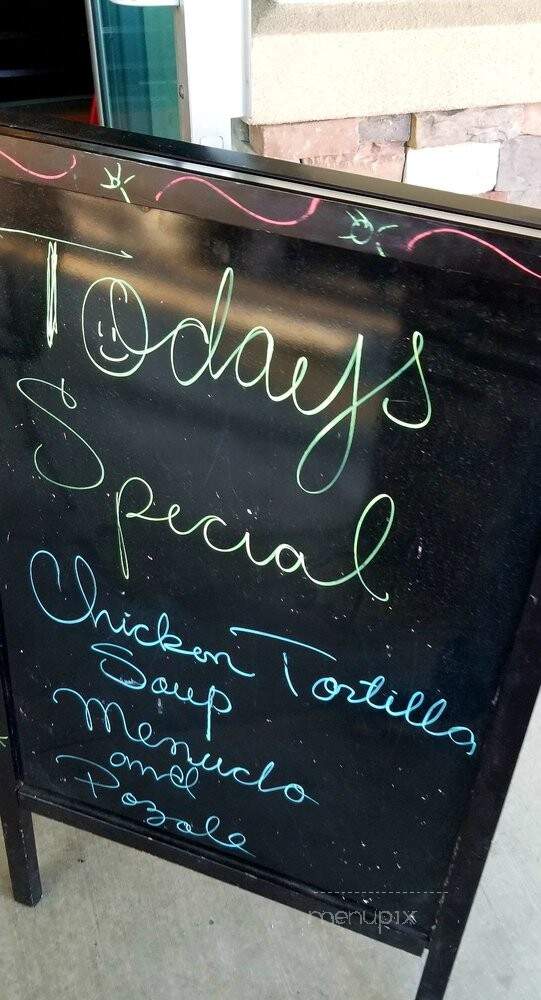 Todays
Special
Chicken Tortilla
Soup
Menudo
and
Pozole
menupix